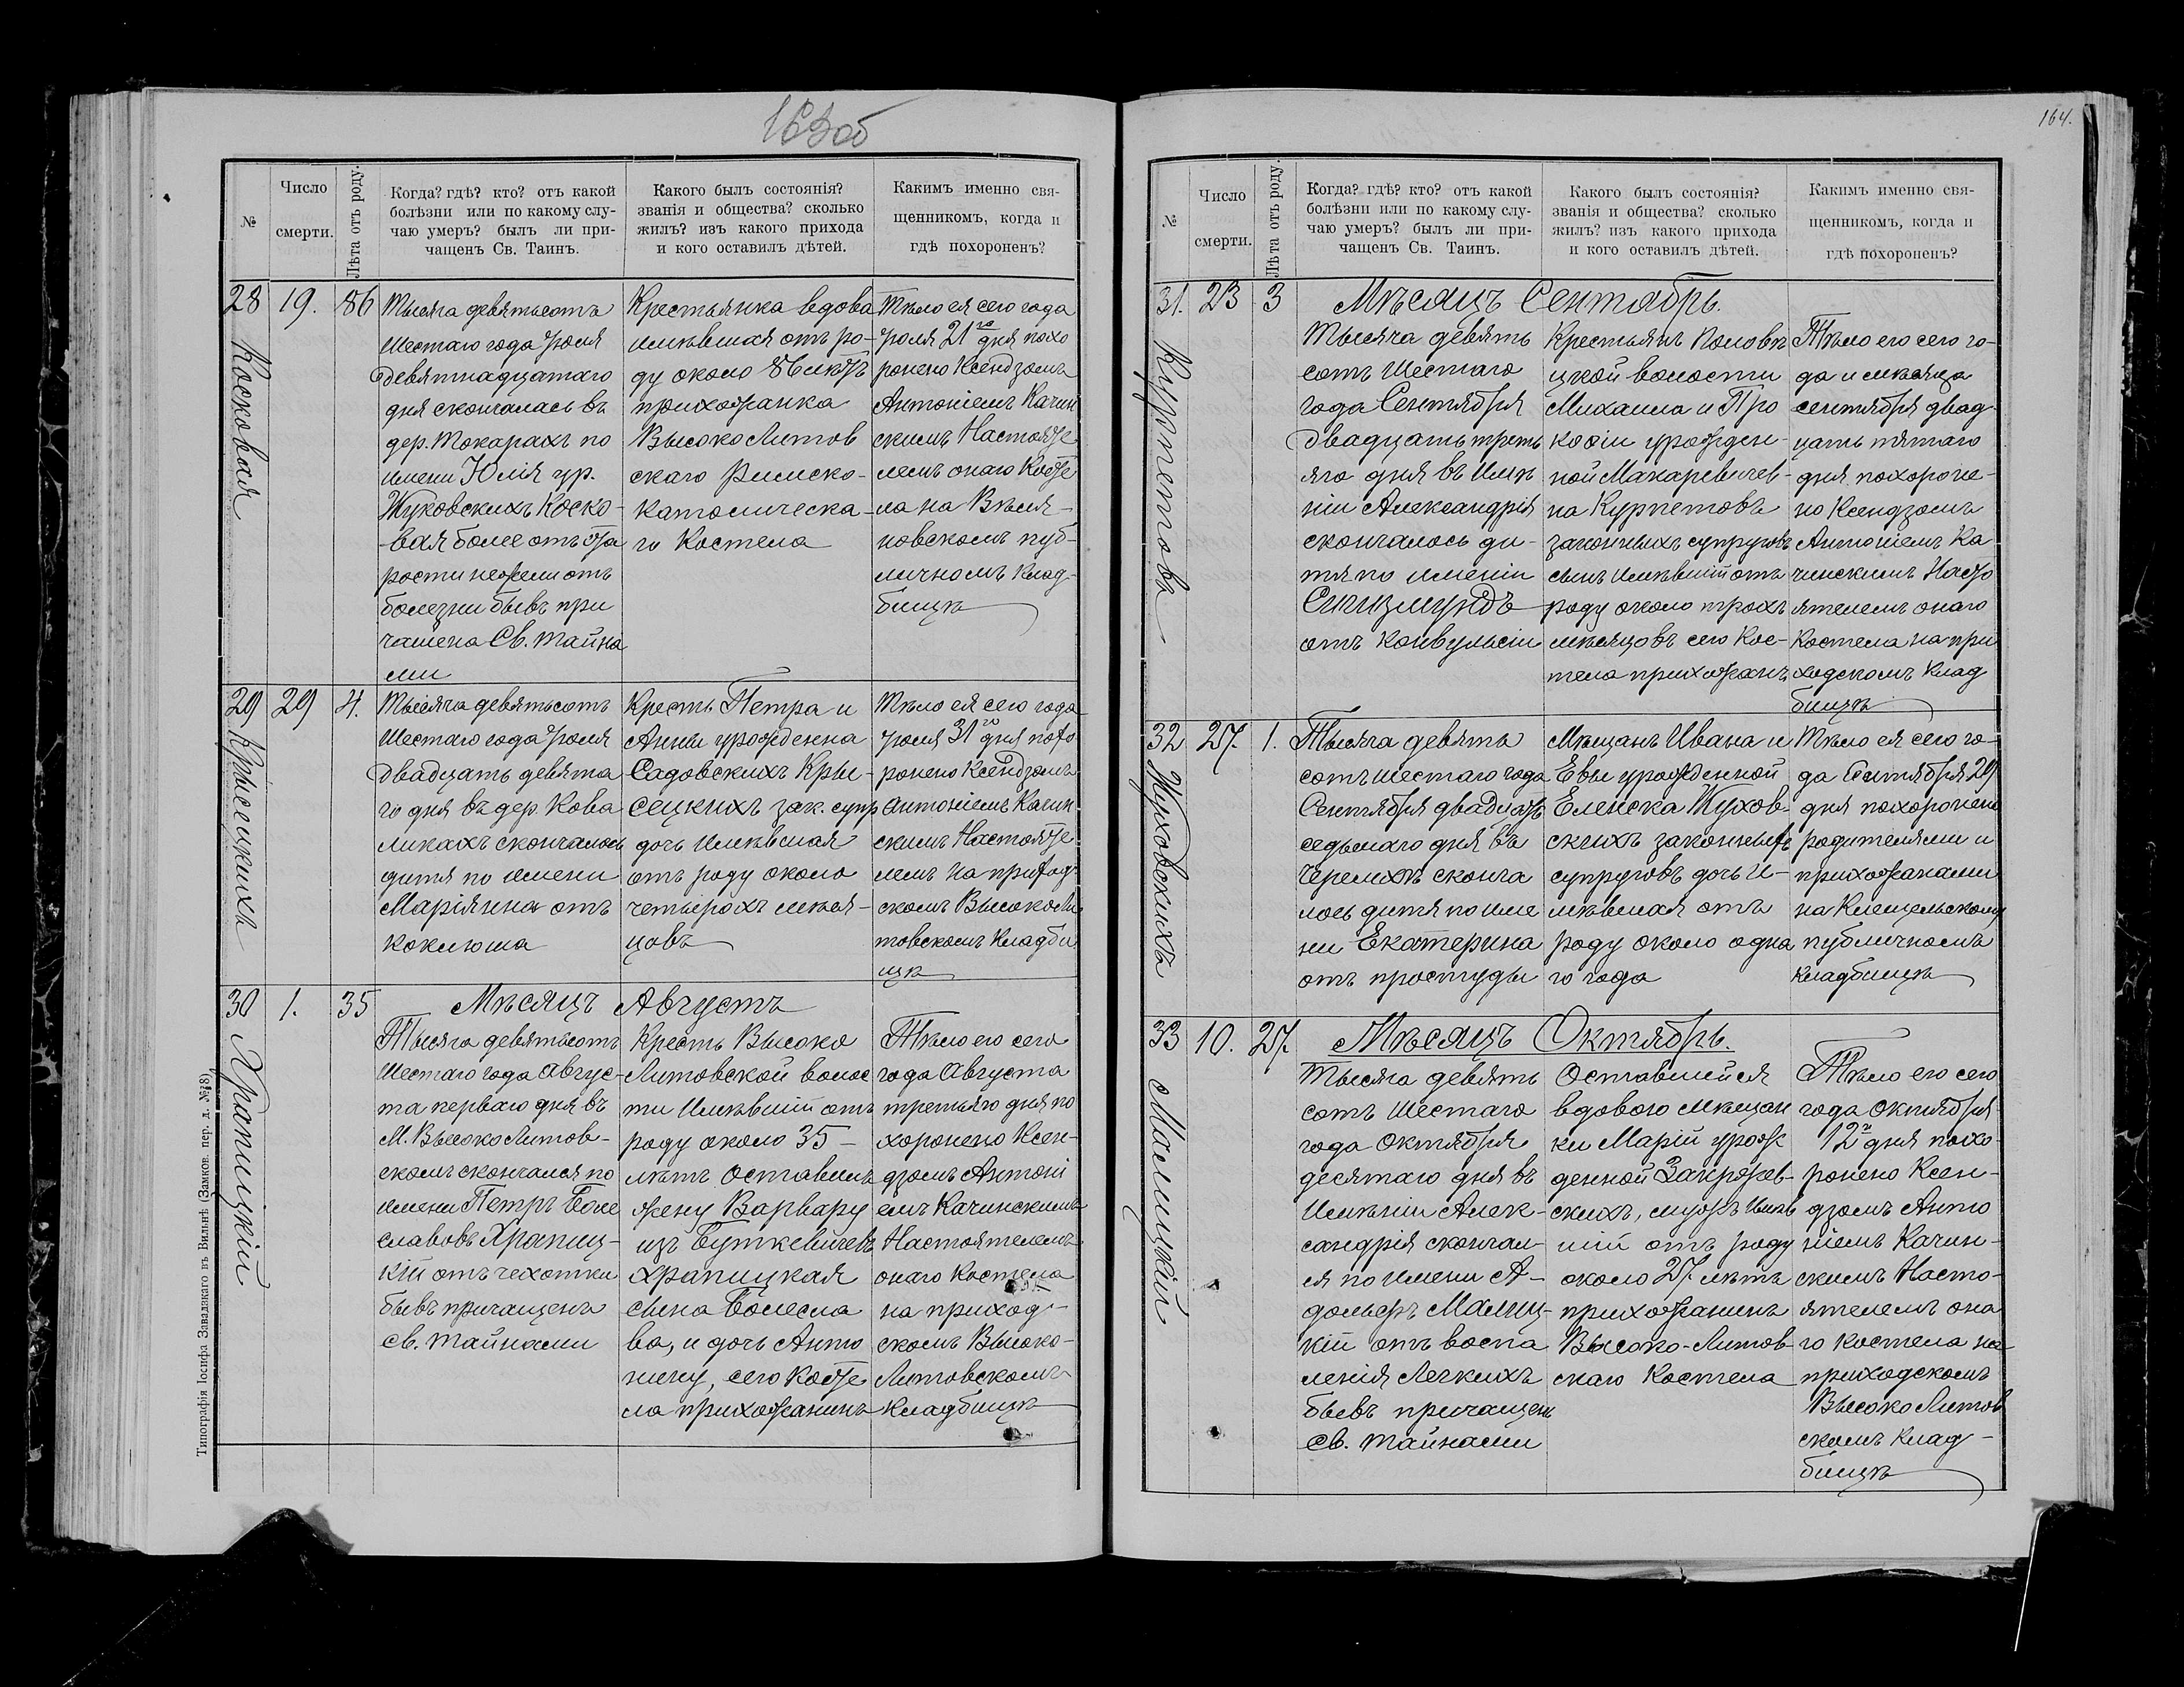 163об
№
Число
смерти.
Лѣта отъ роду.
Когда? гдѣ? кто? отъ какой
болѣзни или по какому слу-
чаю умеръ? былъ ли при-
чащенъ Св. Таинъ.
Какого былъ состоянія?
званія и общества? сколько
жилъ? изъ какого прихода
и кого оставилъ дѣтей.
Какимъ именно свя-
щенникомъ, когда и
гдѣ похороненъ?
28
Косковая
19.
86
Тысяча девятьсотъ
Шестаго года Іюля
девятнадцатаго
дня скончалась въ
дер. Токарахъ по
имени Юлія ур.
Жуковскихъ Коско-
вая более отъ ста
рости нежели отъ
болезни бывъ при
чащена Св. Тайна
ми
Крестьянка вдова
имѣвшая отъ ро-
ду около 86 лѣтъ
прихожанка
ВысокоЛитов
скаго Римско-
католическа-
го Костела
Тѣло ея сего года
Іюля 21го дня похо
ронено Ксендзомъ
Антоніемъ Качин
скимъ Настояте
лемъ онаго Косте
ла на Вѣля-
новскомъ пуб-
личномъ клад-
бищѣ
29
Крысецкихъ
29
4.
Тысяча девятьсотъ
Шестаго года Іюля
двадцать девята
го дня въ дер. Кова
ликахъ скончалось
дитя по имени
Маріянна отъ
коклюша
Крест. Петра и
Анны урожденна
Садовскихъ Кры-
сецкихъ зак. супр
дочь имѣвшая
отъ роду около
четырохъ мѣся-
цовъ
Тѣло ея сего года
Іюля 31го дня похо
ронено Ксендзомъ
Антоніемъ Качин
скимъ Настояте
лемъ на приход-
скомъ ВысокоЛи
товскомъ кладби
щѣ
30
Храпицкій
1.
35
Мѣсяцъ Августъ
Тысяча девятьсотъ
Шестаго года Авгус-
та перваго дня въ
М. ВысокоЛитов-
скомъ скончался по
имени Петръ Боле
славовъ Храпиц-
кій отъ чехотки
бывъ причащенъ
Св. Тайнами
Крест. Высоко
Литовской волос
ти имѣвшій отъ
роду около 35 -
лѣтъ оставилъ
жену Варвару
изъ Буткевичевъ
Храпицкая
сына Болесла
ва, и дочь Анто
нину, сего Косте
ла прихожанинъ
Тѣло его сего
года Августа
третьяго дня по
хоронено Ксен-
дзомъ Антоні
емъ Качинскимъ
Настоятелемъ
онаго Костела
на приход-
скомъ Высоко-
Литовскомъ
кладбищѣ
Типографія Іосифа Завадзкаго въ Вильнѣ (Замков. пер. д. №8).
164.
№
Число
смерти.
Лѣта отъ роду.
Когда? гдѣ? кто? отъ какой
болѣзни или по какому слу-
чаю умеръ? былъ ли при-
чащенъ Св. Таинъ.
Какого былъ состоянія?
званія и общества? сколько
жилъ? изъ какого прихода
и кого оставилъ дѣтей.
Какимъ именно свя-
щенникомъ, когда и
гдѣ похороненъ?
31.
Курпетовъ
23
3
Мѣсяцъ Сентябрь.
Тысяча девять
сотъ Шестаго
года Сентября
двадцать треть
яго дня въ имѣ
ніи Александрія
скончалось ди-
тя по имени
Сигизмундъ
отъ конвульсіи
Крестьянъ Половѣ
цкой волости
Михаила и Про
кофіи урожден-
ной Макаревичев-
на Курпетовъ
законныхъ супруговъ
сынъ имѣвшій отъ
роду около трохъ
мѣсяцовъ сего Кос-
тела прихожанъ
Тѣло его сего го-
да и мѣсяца
сентября двад-
цать пятаго
дня похороне-
но Ксендзомъ
Антоніемъ Ка
чинскимъ Насто
ятелемъ онаго
Костела на при
ходскомъ клад
бищѣ
32
Жуховскихъ
27.
1.
Тысяча девять
сотъ шестаго года
Сентября двадцать
седьмаго дня въ
Черемхѣ сконча
лось дитя по име
ни Екатерина
отъ простуды
Мѣщанъ Ивана и
Евы урожденной
Еленска Жухов-
скихъ законныхъ
супруговъ дочь и-
мѣвшая отъ
роду около одна
го года
Тѣло ея сего го-
да Сентября 29
дня похоронено
родителями и
прихожанами
на Клещельскому
публичномъ
кладбищѣ
33
Малицкій
10.
27.
Мѣсяцъ Октябрь.
Тысяча девять
сотъ Шестаго
года Октября
десятаго дня въ
Имѣніи Алек-
сандрія скончал-
ся по имени А-
дольфъ Малиц-
кій отъ воспа
ленія Легкихъ
бывъ причащенъ
Св. Тайнами
Оставшійся
вдовою мѣщан
ки Марій урож
денной Закржев-
скихъ, мужъ имѣв
шій отъ роду
около 27. лѣтъ
прихожанинъ
Высоко-Литов-
скаго Костела
Тѣло его сего
года Октября
12го дня похо-
ронено Ксен-
дзомъ Анто
ніемъ Качин-
скимъ Насто-
ятелемъ она
го костела на
приходскомъ
ВысокоЛитов
скомъ клад-
бищѣ